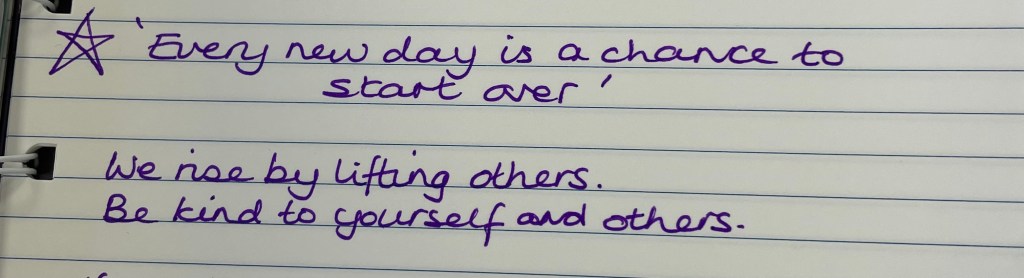 'Every new day is a chance to
start over'
We rise by lifting others.
Be kind to yourself and others.